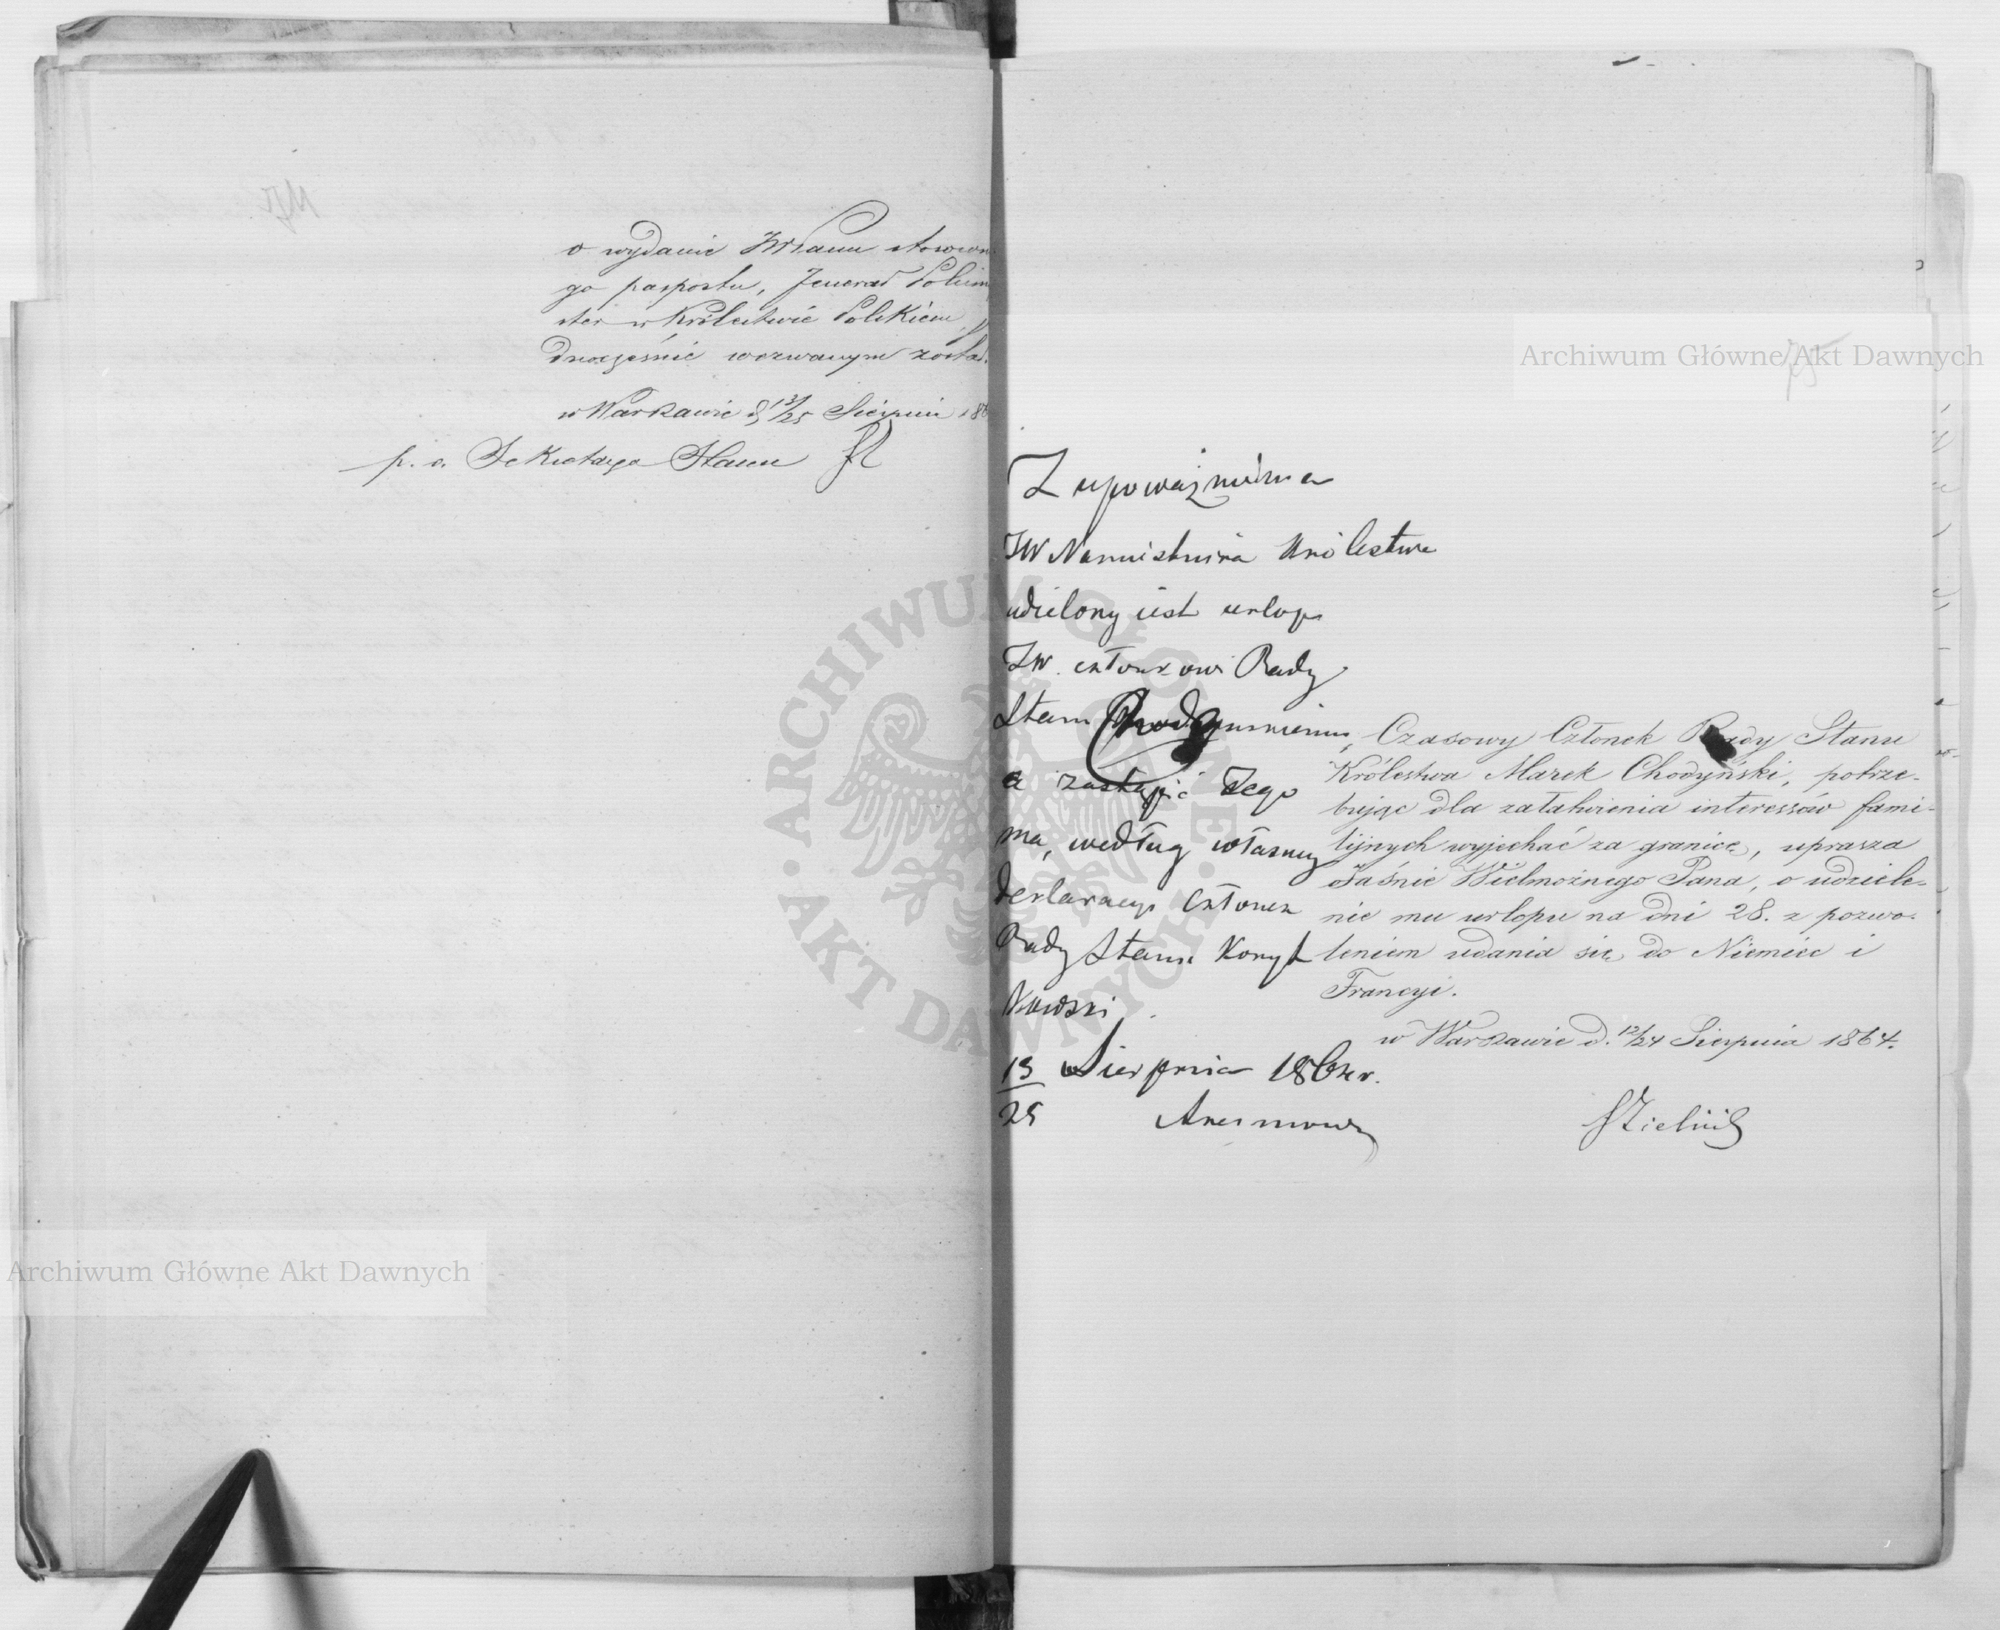 o wydanie JWPanu stosown
go paszportu, Jenerał Policm
ster w Królestwie Polskiem
dnocześnie wezwanym został.
w Warszawie d. 13/25 Sierpnia 186
p. o. Sekretarza Stanu
Z upoważnienia
JW Namiestnika Królestwa
udzielony jest urlop
JW. członkowi Rady
Stanu Chodyńskiemu,
a zastąpić Jego
ma, według własney
deklaracyi Członek
Rady Stanu Koryt
kowski
13 Sierpnia 1864 r.
25
Czasowy Członek Rady Stanu
Królestwa Marek Chodyński, potrze-
bując dla załatwienia interessów fami-
lijnych wyjechać za granicę, uprasza
Jaśnie Wielmożnego Pana, o udziele-
nie mu urlopu na dni 28. z pozwo-
leniem udania się do Niemiec i
Francyi.
w Warszawie d. 12/24 Sierpnia 1864.
Archiwum Główne Akt Dawnych
Archiwum Główne Akt Dawnych
ARCHIWUM GŁÓWNE AKT DAWNYCH